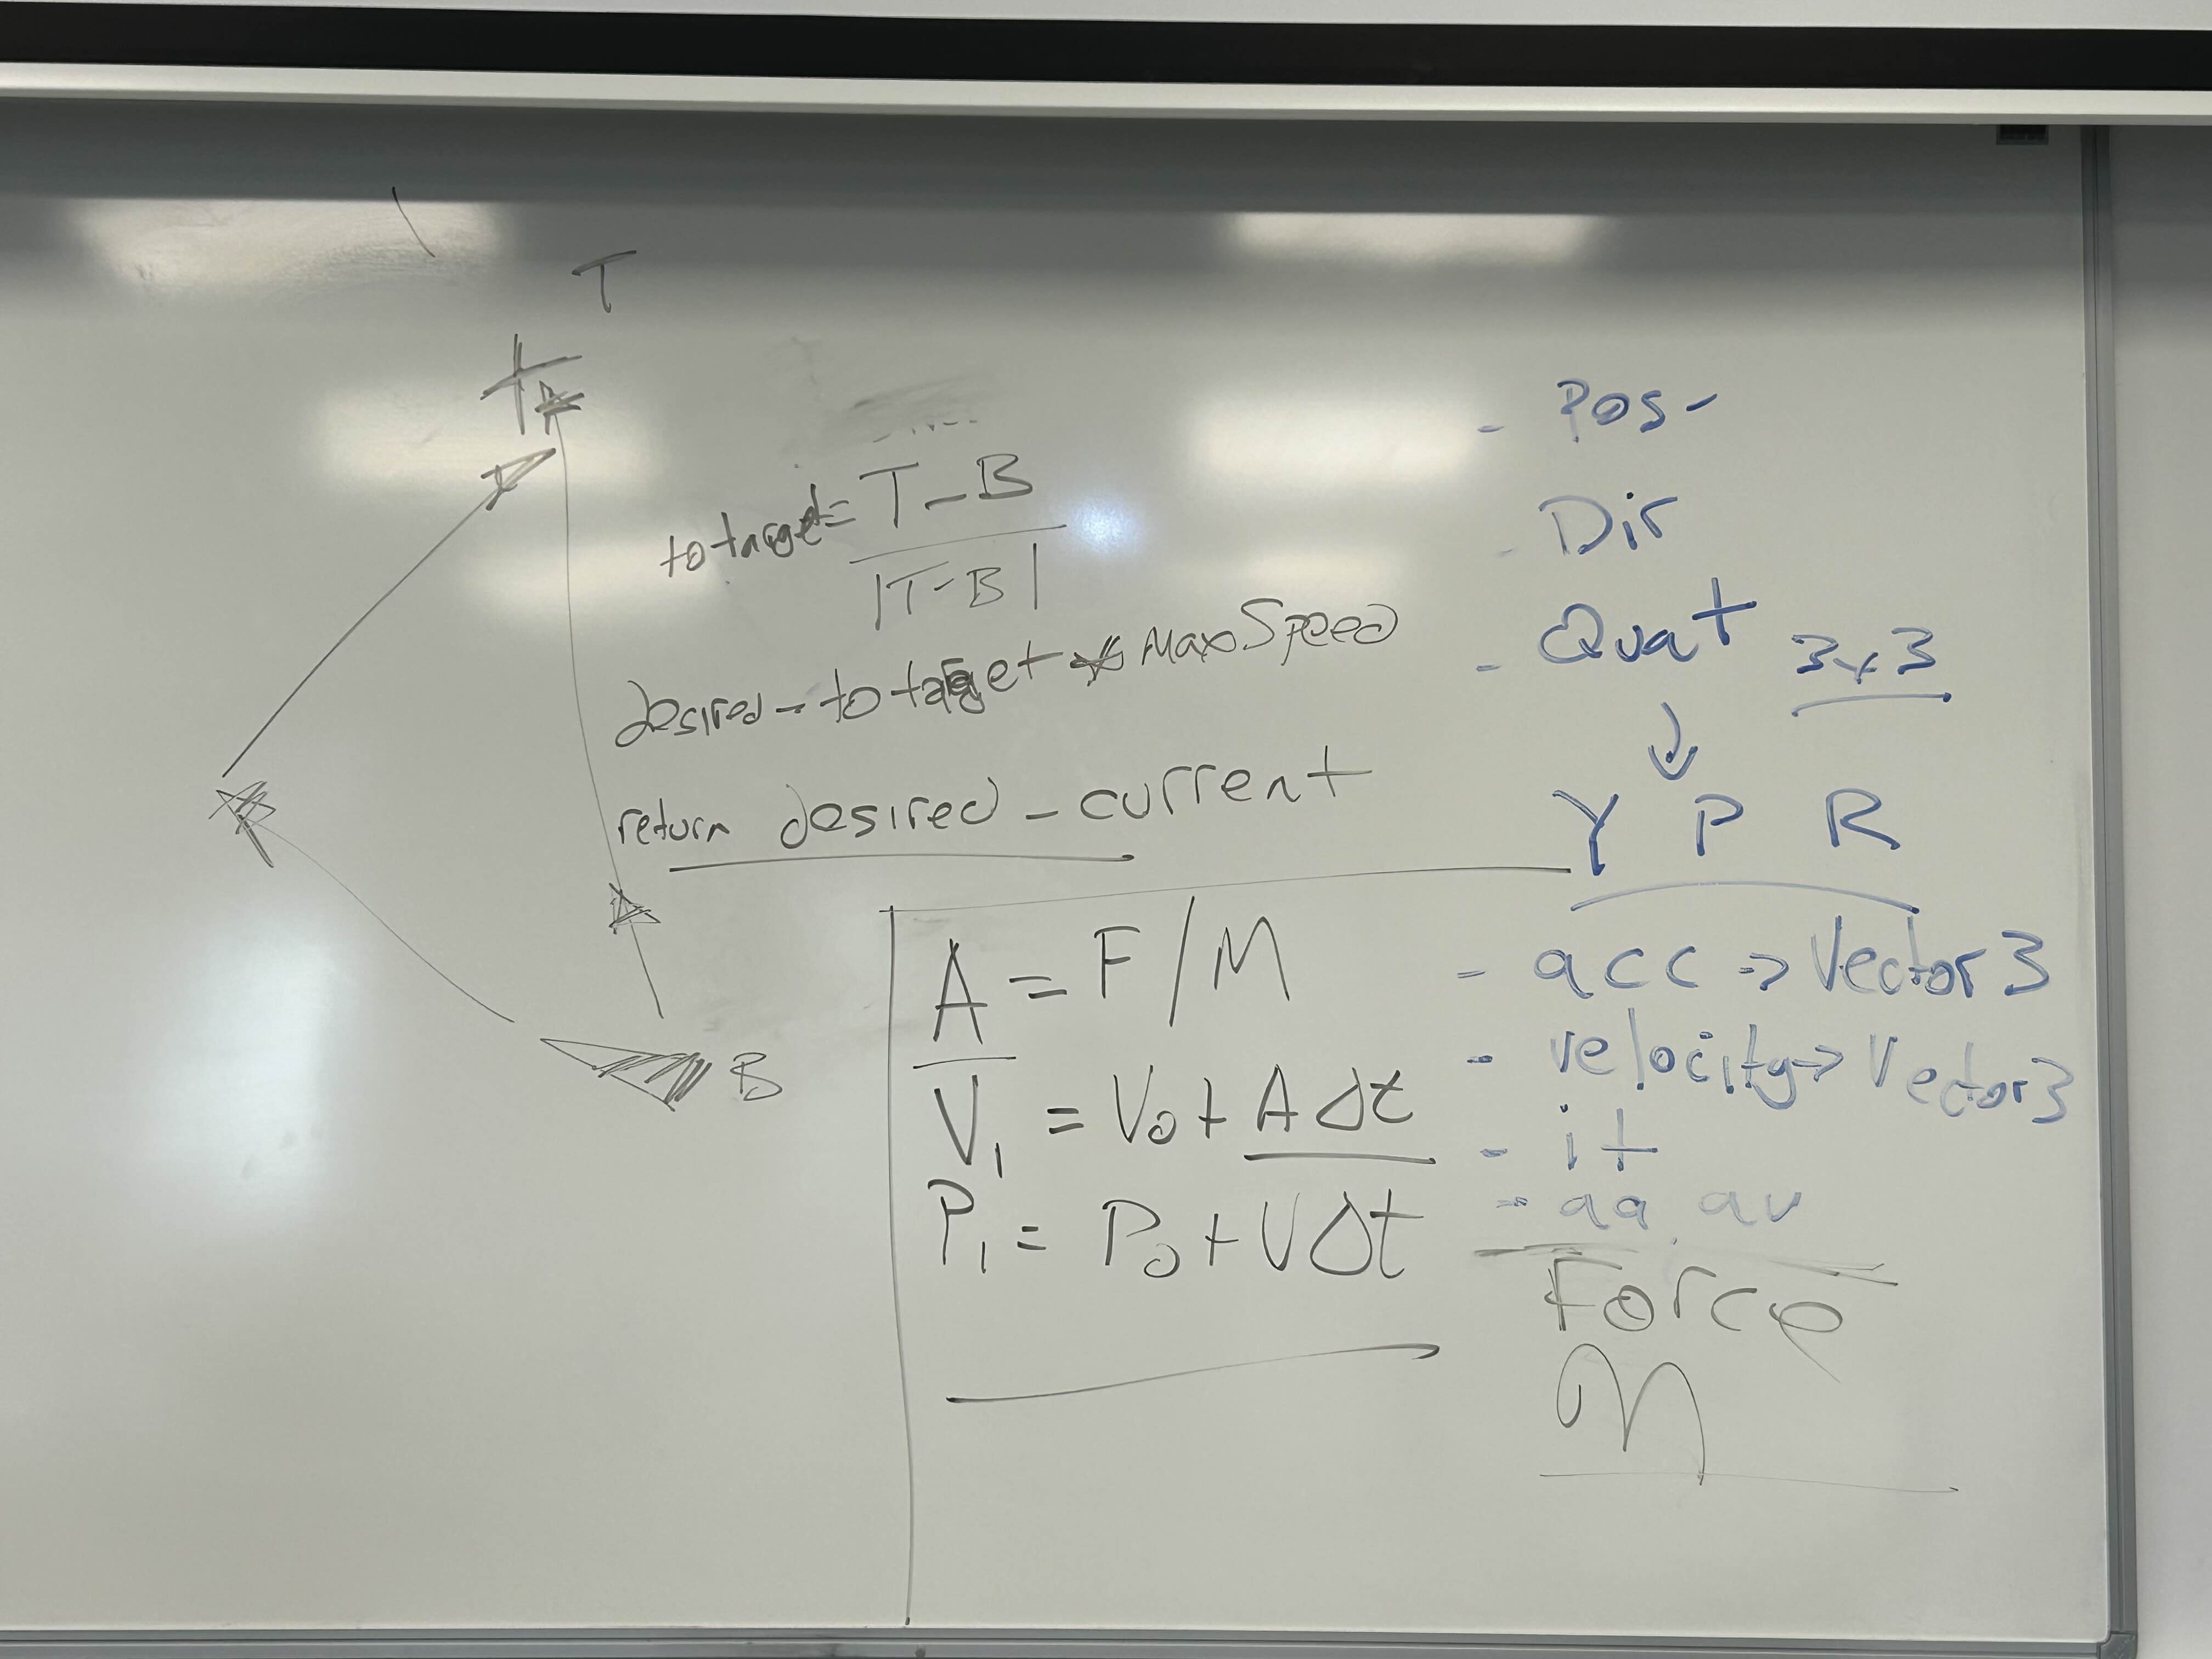 T
to target = T - B
|T - B|
desired = to target * MaxSpeed
return desired - current
B
A = F / M
V₁ = V₀ + A Δt
P₁ = P₀ + V Δt
- Pos -
- Dir
- Quat 3x3
↓
Y P R
- acc -> Vector3
- velocity -> Vector3
- it
- aa, av
Force
M